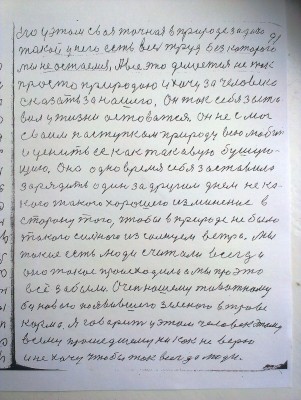 Его у этом своя топная в природе за дово
такой у него есть весь труд без которого
мы не остаемся, А все это делается не так
просто природою и хочу за человека
сказать за нашего, Он так себя зыто
вил у жизни остоватся. он не с мог
своим поступком природу всю любит
и ценить се как таковую бушую-
щию. Оно одно время себя заставило
зарядить один за другим днем не ка-
кого такого хорошего изминение в
сторону того, чтобы в природе не было
такого силного из солнцем ветра. Мы
такие есть люди считали всегда
оно такое происходило а мы про это
всё забыли. Очен нашему животному
бы нового появившего зеленого в траве
корма. Я говорить у этом человек этому
всему прошедшему ни как не верю
и не хочу чтобы так всегда люди.